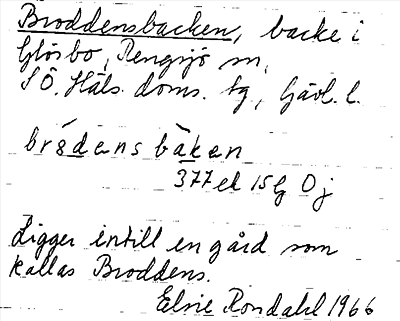 Broddensbacken, backe i
Glösbo, Rengsjö sn,
S Ö. Häls. doms. tg, Gävl. l.
brɵ́dens bàken
377 el 15G Oj
Ligger intill en gård som
kallas Broddens.
Elsie Rondahl 1966